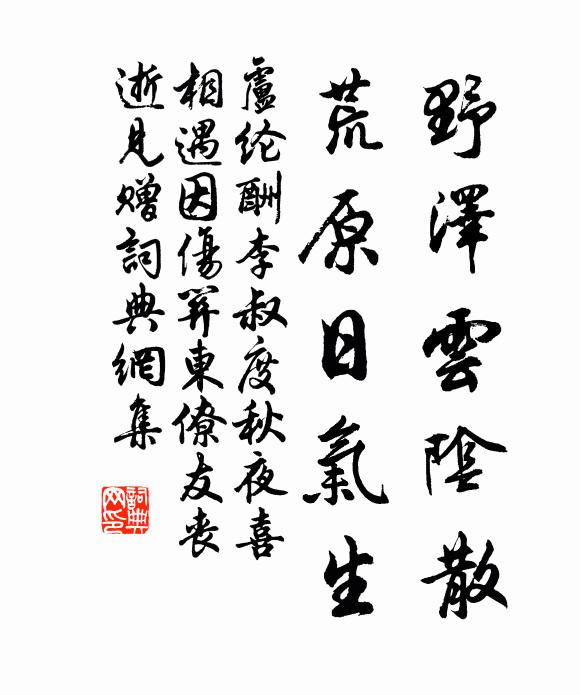 野澤雲陰散
荒原日氣生
盧纶酬李叔度秋夜喜
相遇因傷關東僚友喪
逝見贈詞典網集
詞典网印